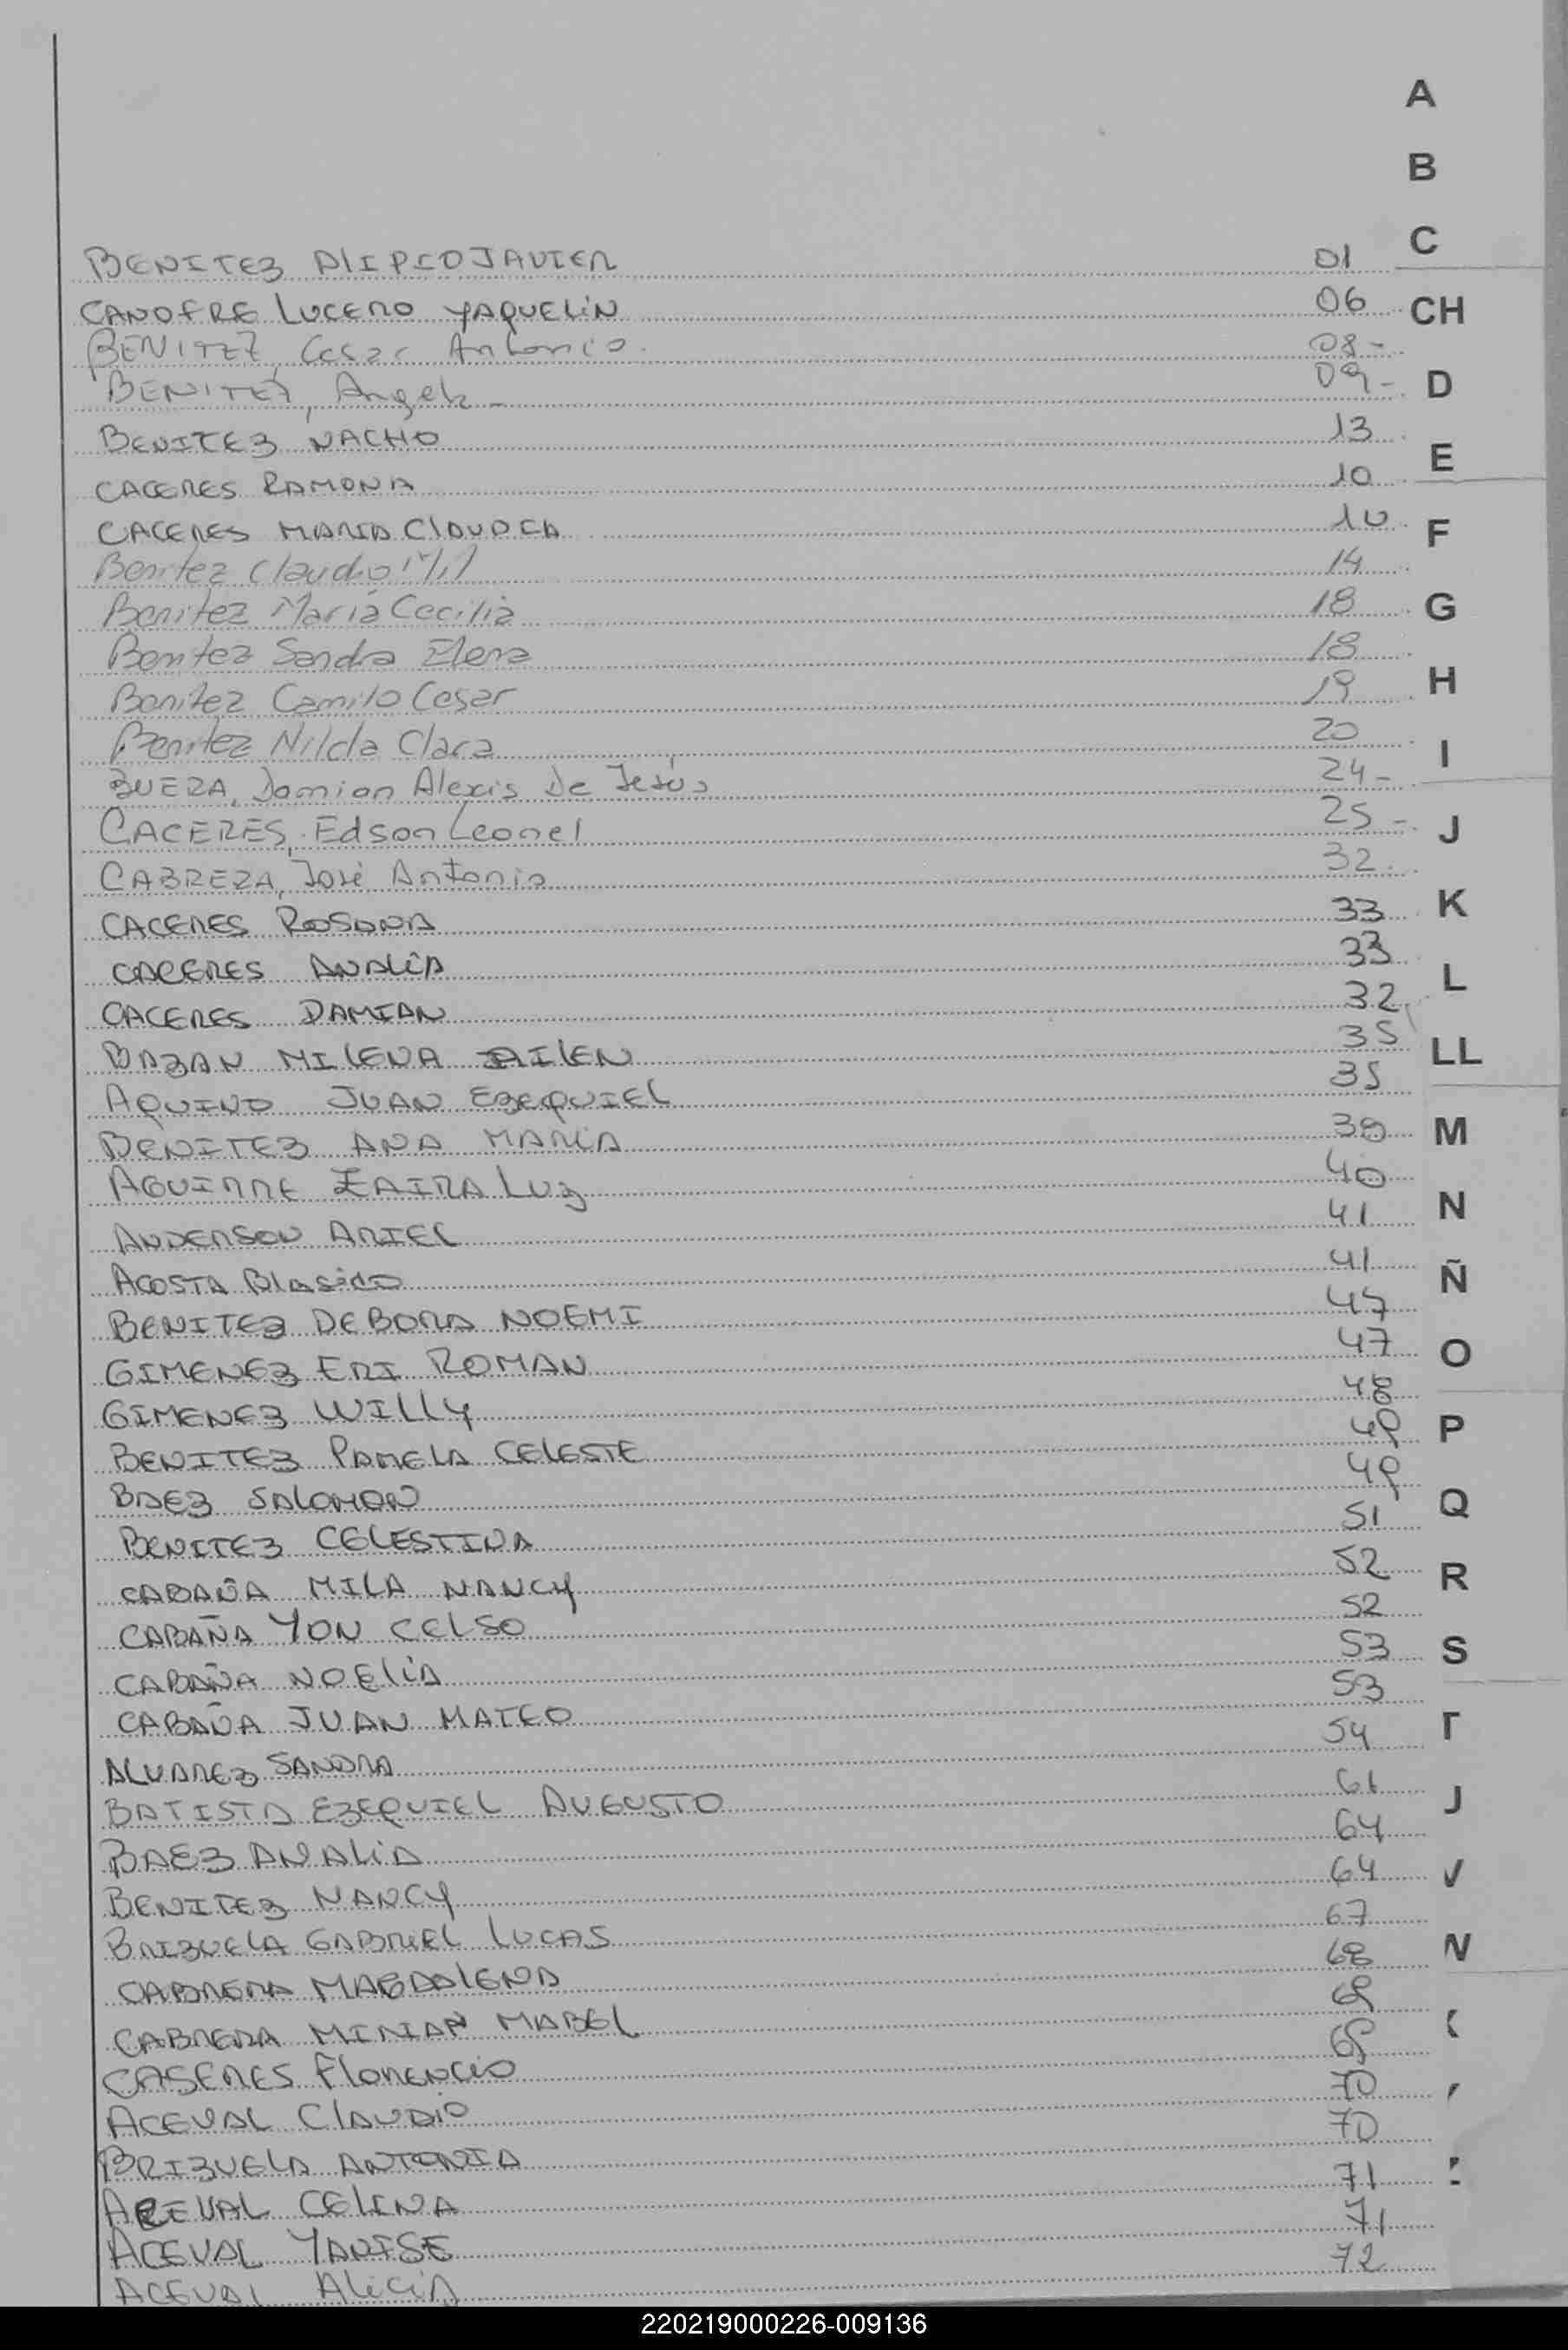 A
B
C
BENITEZ ALIPIO JAVIER 01
CANOFRE LUCERO YAQUELIN 06
CH
BENITEZ, Cesar Antonio. 08-
BENITEZ, Angela - 09-
D
BENITEZ NACHO 13
E
CACERES RAMONA 10
CACERES MARIA CLAUDIA 10
F
Benitez Claudio 14
Benitez María Cecilia 18
G
Benitez Sandra Elena 18
Benitez Camilo Cesar 19
H
Benitez Nilda Clara 20
I
BUERA, Damian Alexis De Jesús 24-
CACERES, Edson Leonel 25-
J
CABRERA, José Antonio 32.
CACERES ROSANA 33
K
CACERES ANALIA 33
L
CACERES DAMIAN 32
BAZAN MILENA AILEN 35
LL
AQUINO JUAN EZEQUIEL 35
BENITEZ ANA MARIA 38
M
AGUIRRE ZAIRA LUZ 40
ANDERSON ARIEL 41
N
ACOSTA Blasido 41
Ñ
BENITEZ DEBORA NOEMI 47
GIMENEZ ERI ROMAN 47
O
GIMENEZ WILLY 48
BENITEZ PAMELA CELESTE 49
P
BAEZ SALOMON 49
BENITEZ CELESTINA 51
Q
CABAÑA MILA NANCY 52
R
CABAÑA YON CELSO 52
CABAÑA NOELIA 53
S
CABAÑA JUAN MATEO 53
ALVAREZ SANDRA 54
T
BATISTA EZEQUIEL AUGUSTO 61
BAEZ ANALIA 64
BENITEZ NANCY 64
V
BRIZUELA GABRIEL LUCAS 67
CABRERA MAGDALENA 68
CABRERA MIRIAN MABEL 69
CASERES FLORENCIO 69
ACEVAL CLAUDIO 70
BRIZUELA ANTONIA 70
ACEVAL CELINA 71
ACEVAL YANISE 71
ACEVAL ALICIA 72
220219000226-009136